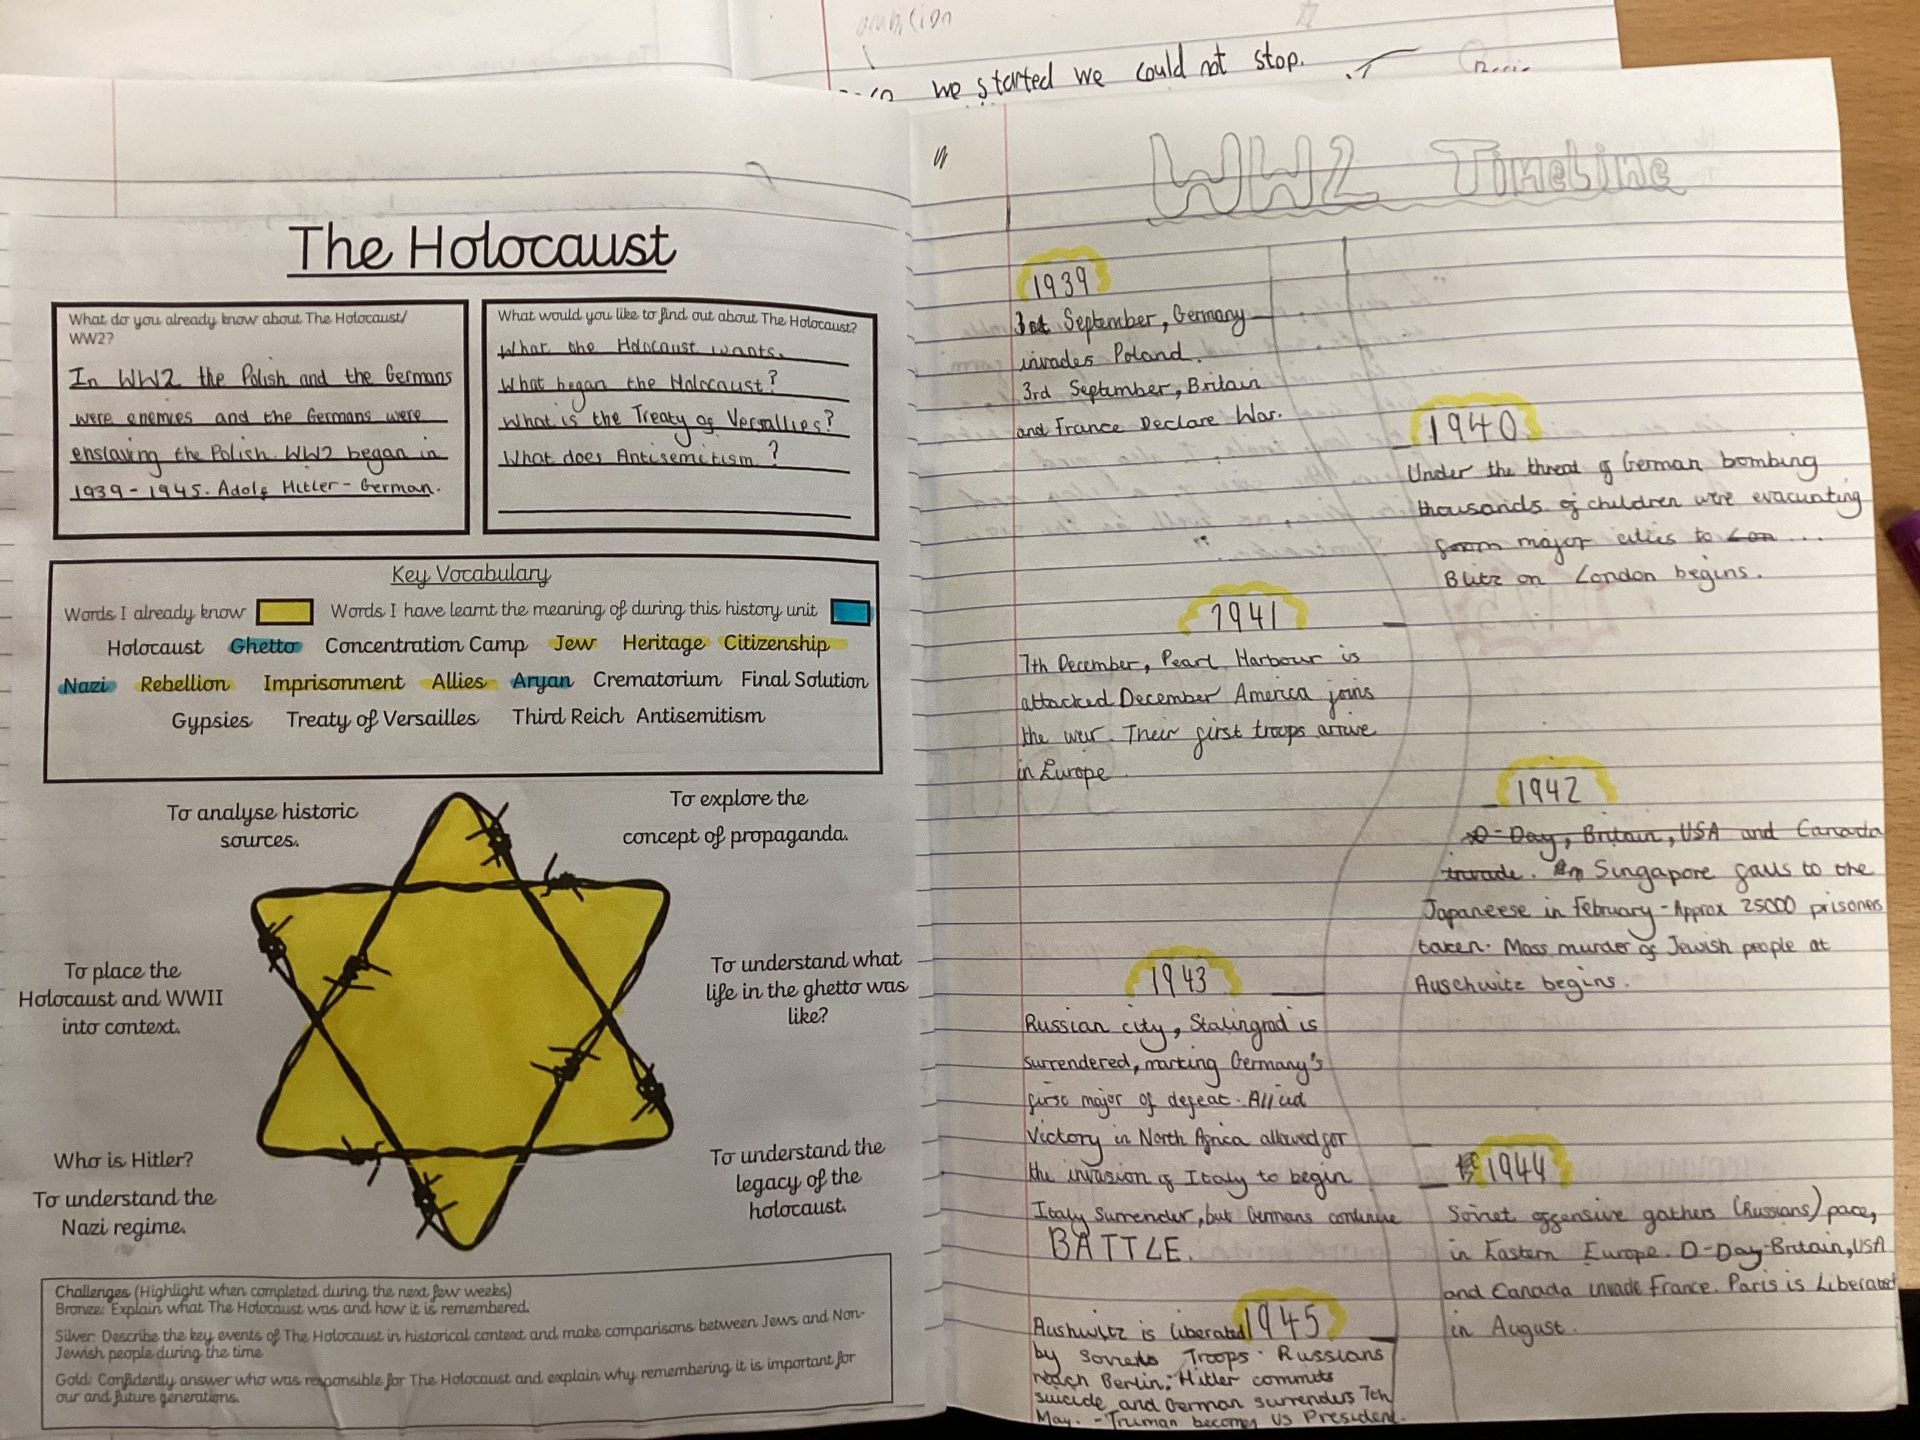 ambition
we started we could not stop.
The Holocaust
What do you already know about The Holocaust/
WW2?
In WW2 the Polish and the Germans
were enemies and the Germans were
enslaving the Polish. WW2 began in
1939-1945. Adolf Hitler - German.
What would you like to find out about The Holocaust?
What the Holocaust wants.
What began the Holocaust?
What is the Treaty of Versallies?
What does Antisemitism?
Key Vocabulary
Words I already know
Words I have learnt the meaning of during this history unit
Holocaust Ghetto Concentration Camp Jew Heritage Citizenship
Nazi Rebellion Imprisonment Allies Aryan Crematorium Final Solution
Gypsies Treaty of Versailles Third Reich Antisemitism
To analyse historic
sources.
To explore the
concept of propaganda.
To place the
Holocaust and WWII
into context.
To understand what
life in the ghetto was
like?
Who is Hitler?
To understand the
Nazi regime.
To understand the
legacy of the
holocaust.
Challenges (Highlight when completed during the next few weeks)
Bronze: Explain what The Holocaust was and how it is remembered.
Silver: Describe the key events of The Holocaust in historical context and make comparisons between Jews and Non-
Jewish people during the time
Gold: Confidently answer who was responsible for The Holocaust and explain why remembering it is important for
our and future generations.
WW2 Timeline
1939
1st September, Germany
invades Poland.
3rd September, Britain
and France Declare War.
1940
Under the threat of German bombing
thousands of children were evacuating
from major cities to Lon ...
Blitz on London begins.
1941
7th December, Pearl Harbour is
attacked December America joins
the war. Their first troops arrive
in Europe
1942
D-Day, Britain, USA and Canada
invade. Singapore falls to the
Japaneese in February - Approx 25000 prisoners
taken. Mass murder of Jewish people at
Auschwitz begins.
1943
Russian city, Stalingrad is
surrendered, marking Germany's
first major of defeat. Allied
Victory in North Africa allowed for
the invasion of Italy to begin
Italy Surrender, but Germans continue
BATTLE.
1944
Soviet offensive gathers (Russians) pace,
in Eastern Europe. D-Day-Britain, USA
and Canada invade France. Paris is Liberated
in August.
1945
Aushwitz is liberated
by soviets Troops. Russians
reach Berlin: Hitler commits
suicide and German surrenders 7th
May. - Truman becomes US President.